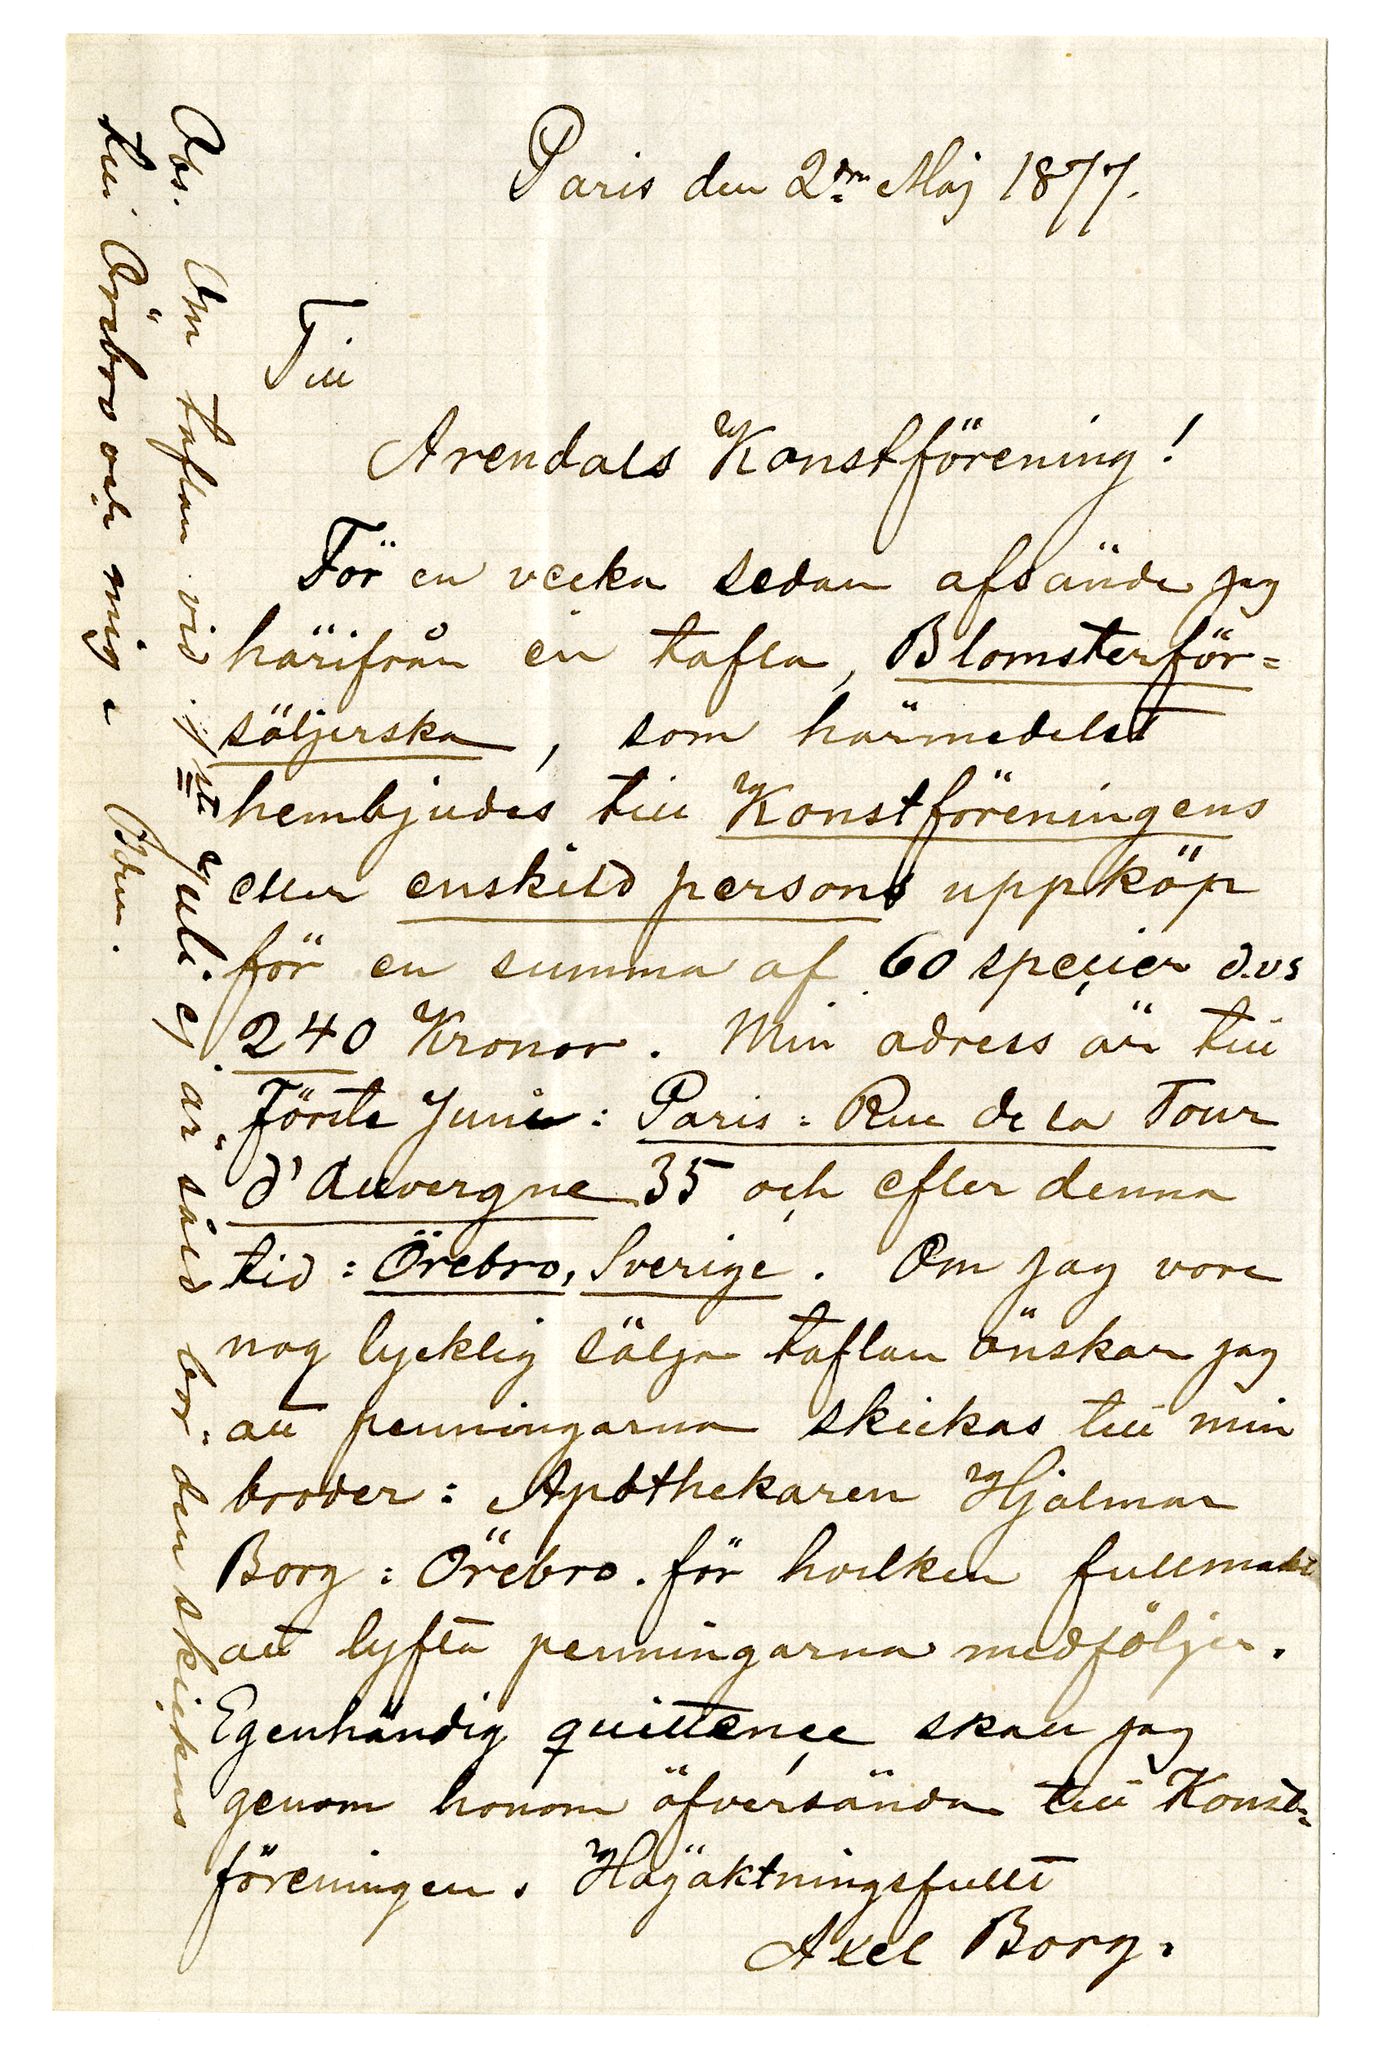 Paris den 2dra Maj 1877.
Till
Arendals Konstförening!
För en vecka sedan afsände jag
härifrån en tafla, Blomsterför=
säljerska, som härmedelst
hembjudes till Konstföreningens
eller enskild persons uppköp
för en summa af 60 specier d.v.s
240 Kronor. Min adress är till
Förste Juni: Paris: Rue de la Tour
d'Auvergne 35 och efter denna
tid: Örebro, Sverige. Om jag vore
nog lycklig sälja taflan önskar jag
att penningarna skickas till min
broder: Apothekaren Hjalmar
Borg: Örebro. för hvilken fullmakt
att lyfta penningarna medföljer.
Egenhändig quittence skall jag
genom honom öfversända till Konst=
föreningen. Högaktningsfullt
Axel Borg.
Obs. Om taflan vid 1sta Juli ej är såld bör den skickas
till Örebro och mig.